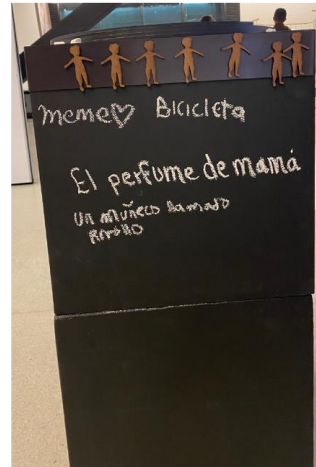 Meme♡ Bicicleta
El perfume de mamá
un muñeco llamado